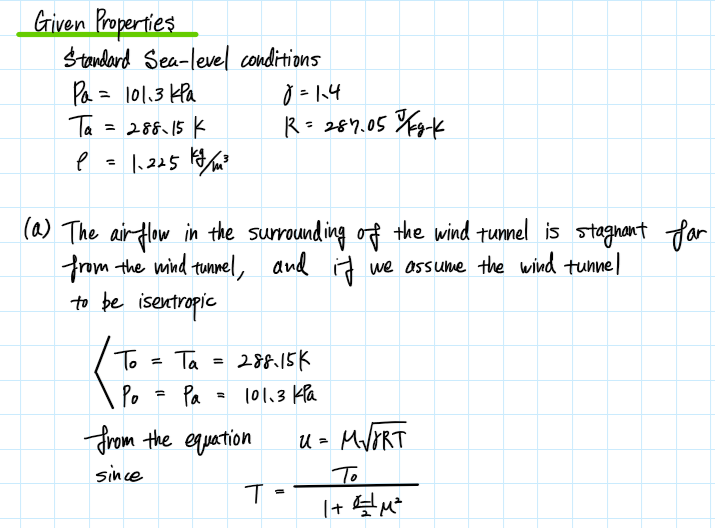 Given Properties
Standard Sea-level conditions
Pa = 101.3 kPa γ = 1.4
Ta = 288.15 K R = 287.05 J/kg-K
ρ = 1.225 kg/m³
(a) The airflow in the surrounding of the wind tunnel is stagnant far
from the wind tunnel, and if we assume the wind tunnel
to be isentropic
To = Ta = 288.15K
Po = Pa = 101.3 kPa
from the equation u = M√γRT
since T = To / (1 + γ-1/2 M²)